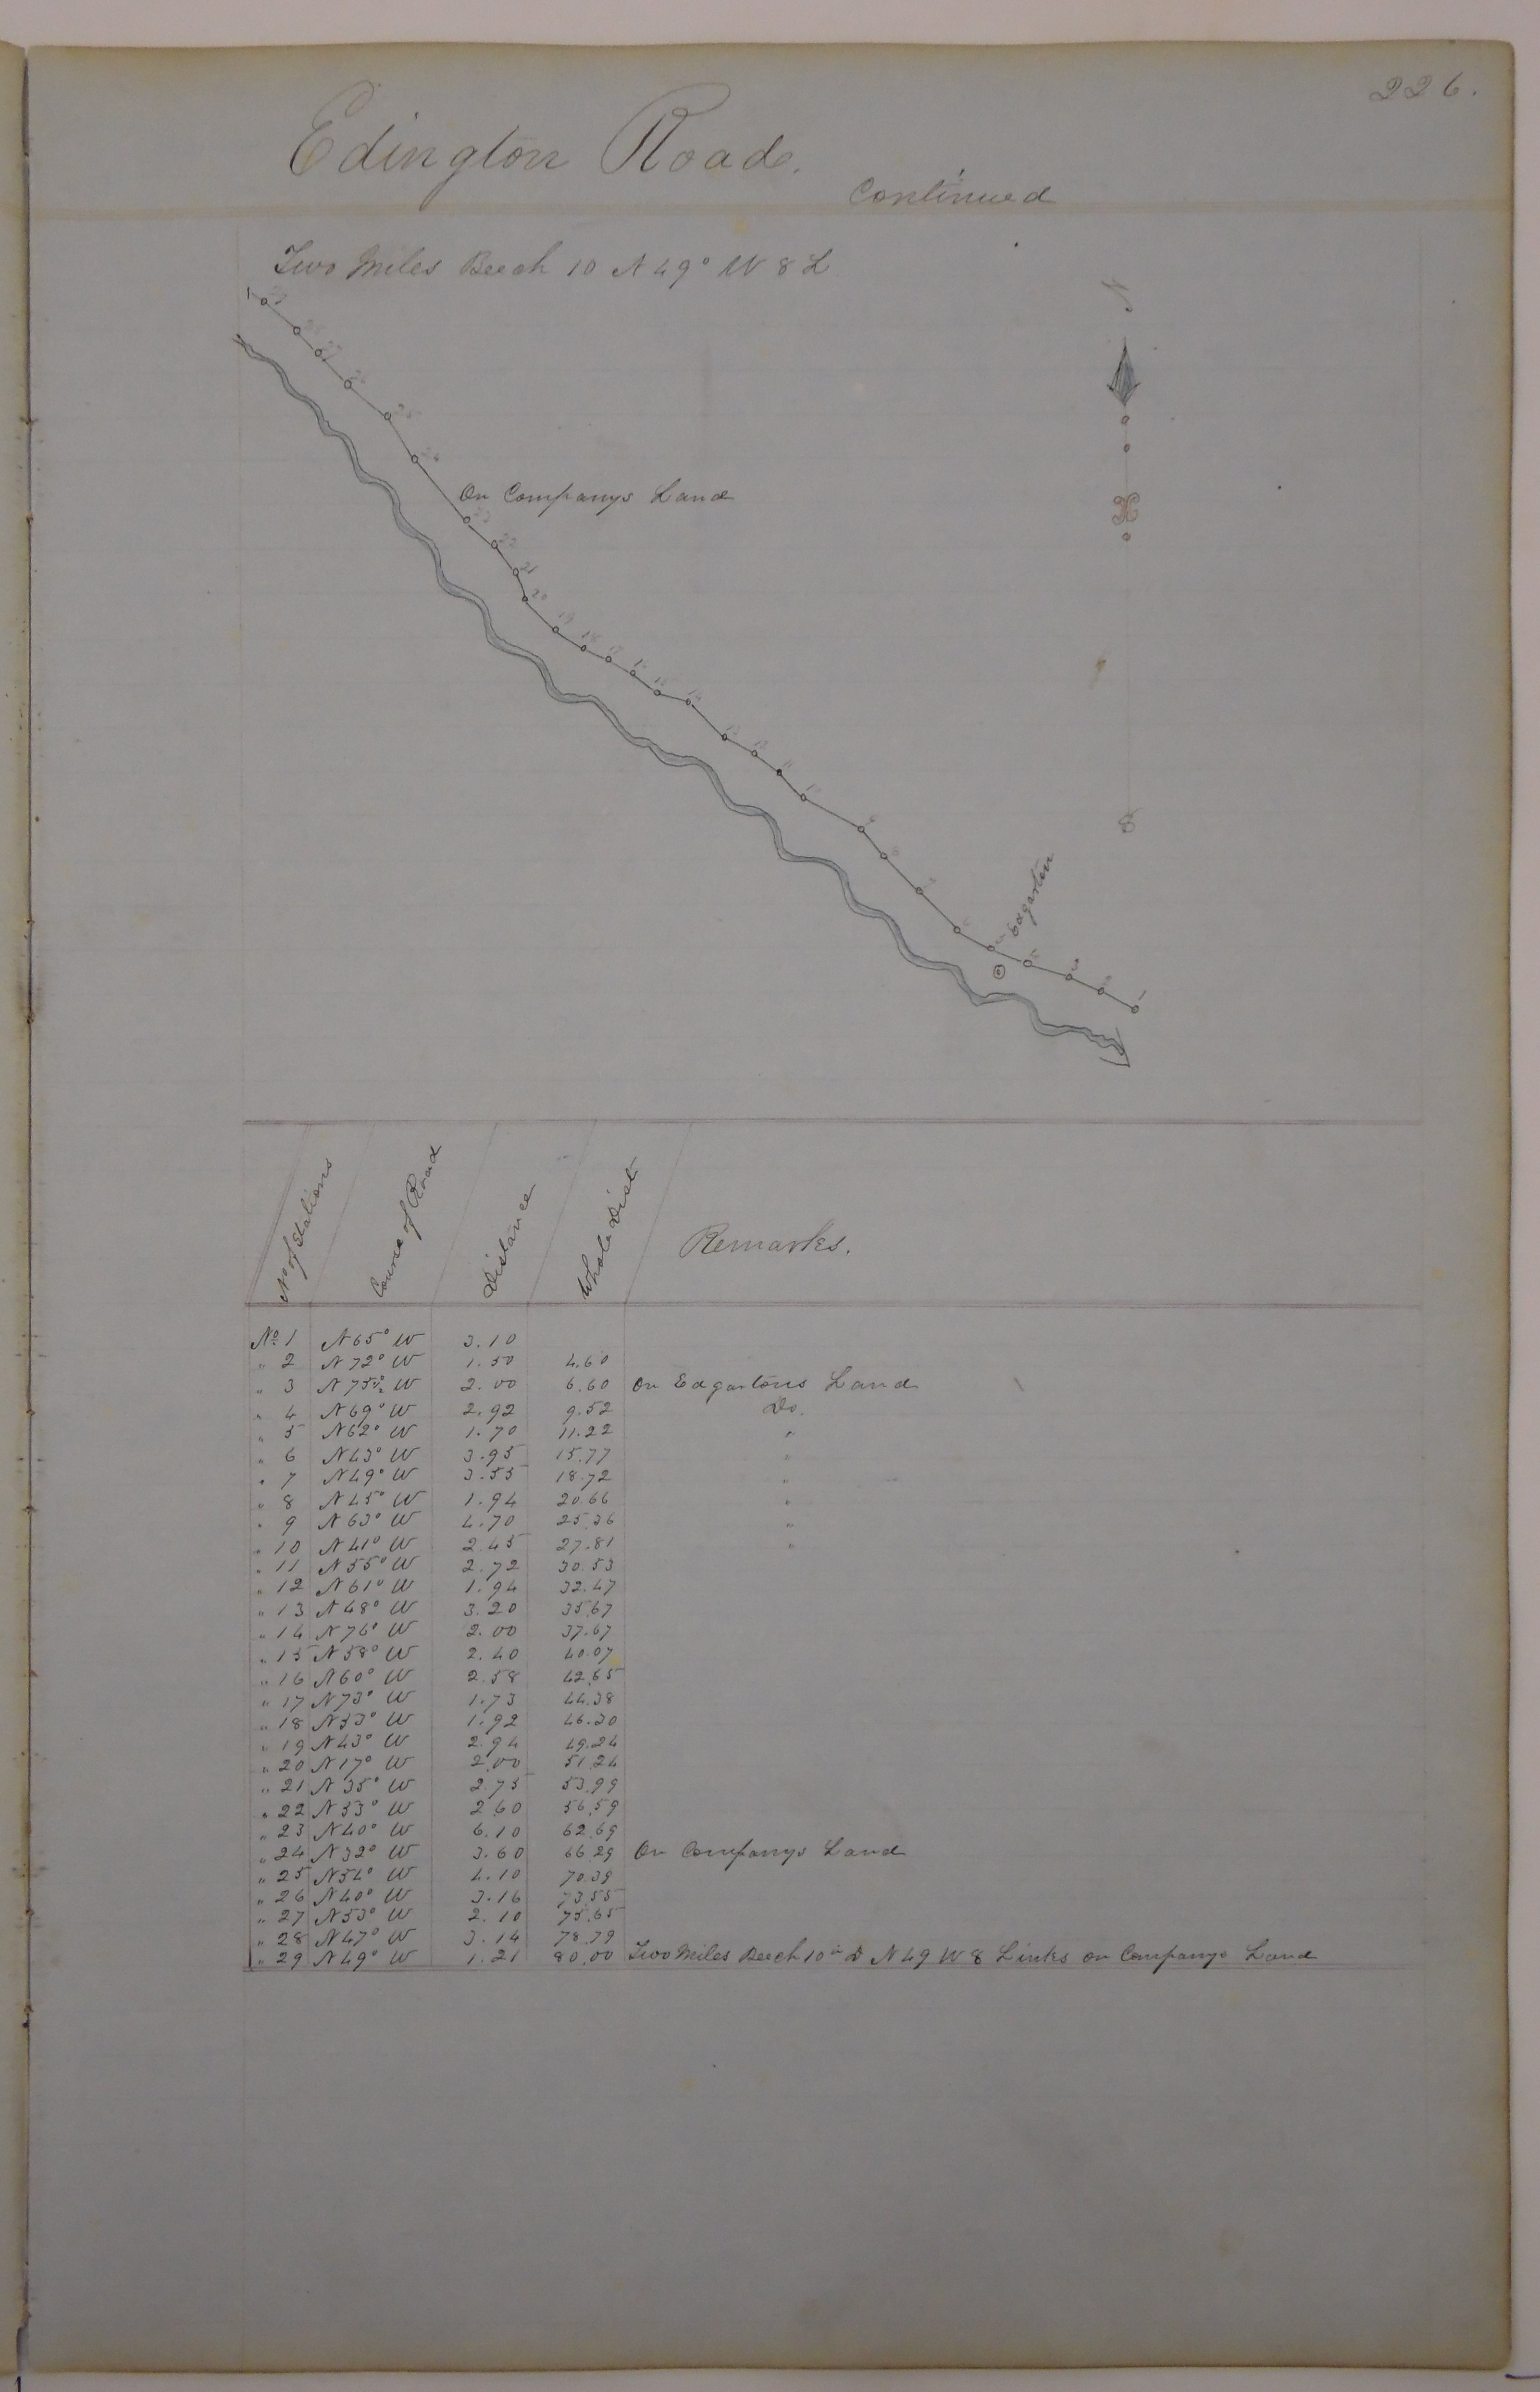 226.
Edington Road.
Continued
Two Miles Beech 10 N 49° W 8 L
N
On Companys Land
S
Edgarton
No of Stations Course of Road Distance Whole Dist Remarks.
No. 1 N 65° W 3.10
" 2 N 72° W 1.50 4.60
" 3 N 75½° W 2.00 6.60 On Edgartons Land
" 4 N 69° W 2.92 9.52 Do.
" 5 N 62° W 1.70 11.22 "
" 6 N 43° W 3.95 15.77 "
" 7 N 49° W 3.55 18.72 "
" 8 N 45° W 1.94 20.66 "
" 9 N 63° W 4.70 25.36 "
" 10 N 41° W 2.45 27.81 "
" 11 N 55° W 2.72 30.53
" 12 N 61° W 1.94 32.47
" 13 N 48° W 3.20 35.67
" 14 N 76° W 2.00 37.67
" 15 N 58° W 2.40 40.07
" 16 N 60° W 2.58 42.65
" 17 N 73° W 1.73 44.38
" 18 N 53° W 1.92 46.30
" 19 N 43° W 2.94 49.24
" 20 N 17° W 2.00 51.24
" 21 N 35° W 2.75 53.99
" 22 N 53° W 2.60 56.59
" 23 N 40° W 6.10 62.69
" 24 N 32° W 3.60 66.29 On Companys Land
" 25 N 54° W 4.10 70.39
" 26 N 40° W 3.16 73.55
" 27 N 53° W 2.10 75.65
" 28 N 47° W 3.14 78.79
" 29 N 49° W 1.21 80.00 Two Miles Beech 10 in D N 49 W 8 Links on Companys Land